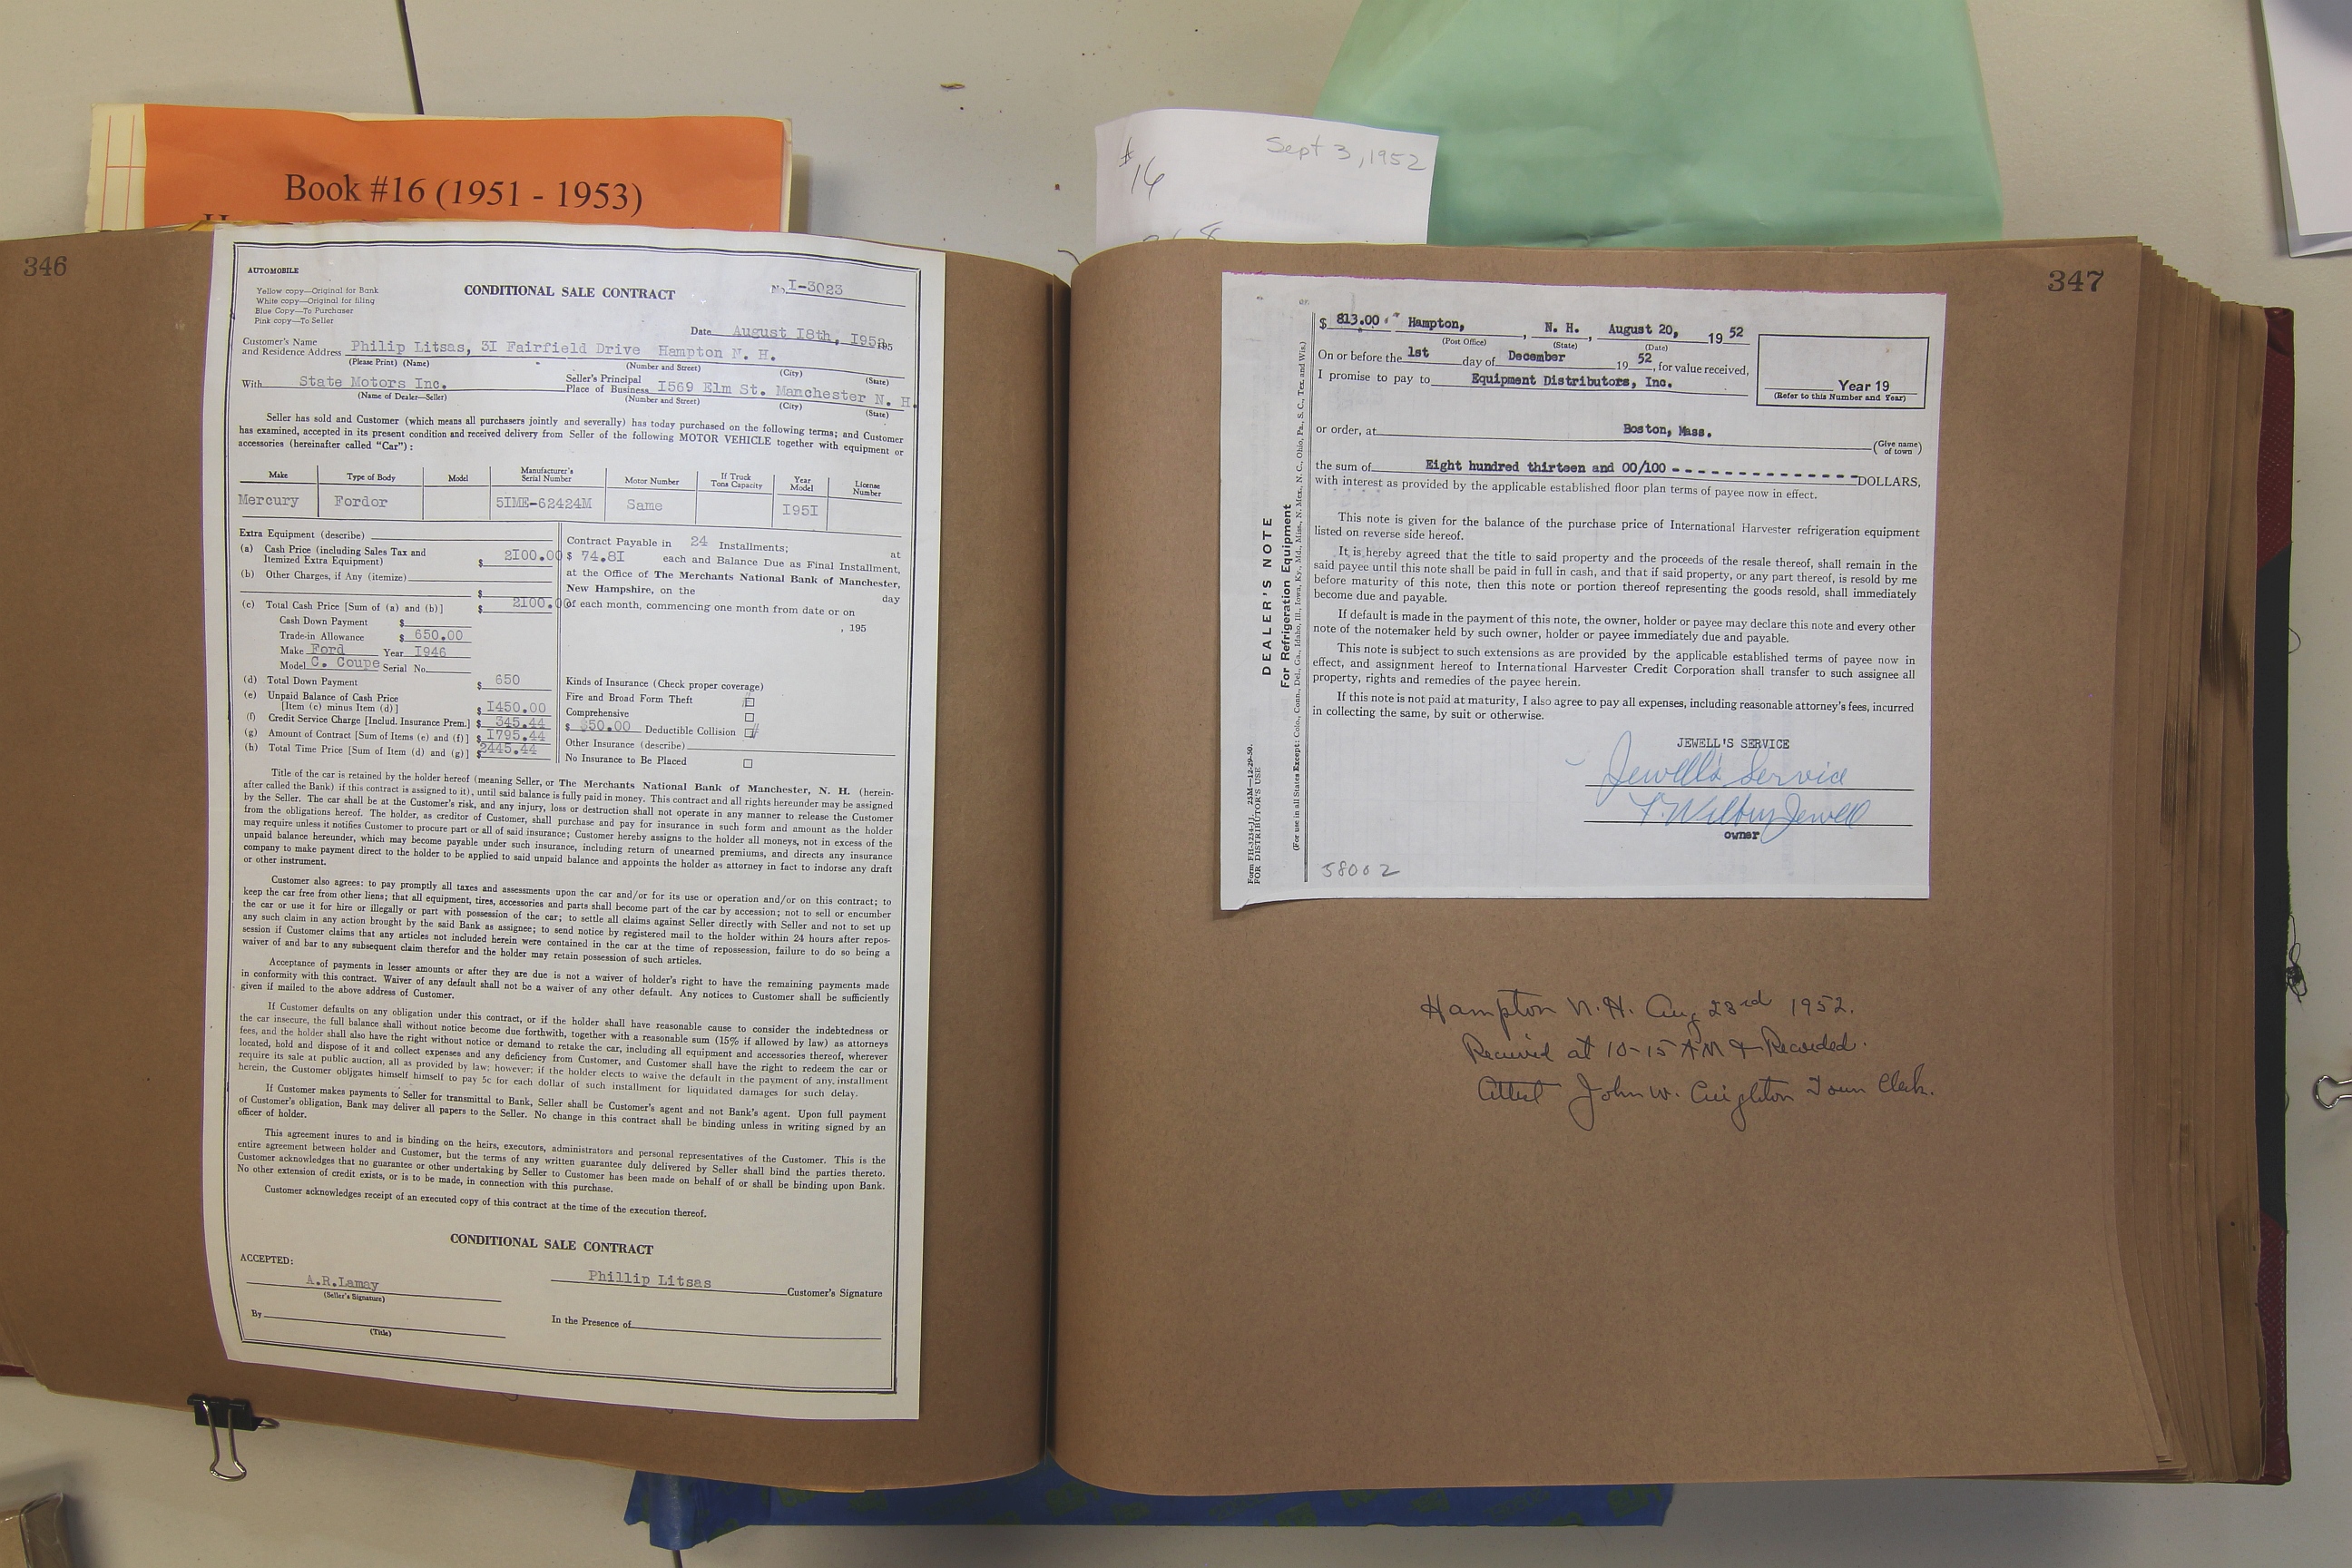 Book #16 (1951 - 1953)
# 16
Sept 3, 1952
346
AUTOMOBILE
Yellow copy—Original for Bank
White copy—Original for filing
Blue Copy—To Purchaser
Pink copy—To Seller
CONDITIONAL SALE CONTRACT
No. I-3023
Date August I8th, I952 195
Customer's Name
and Residence Address Philip Litsas, 3I Fairfield Drive Hampton N. H.
(Please Print) (Name) (Number and Street) (City) (State)
With State Motors Inc. Seller's Principal Place of Business I569 Elm St. Manchester N. H.
(Name of Dealer—Seller) (Number and Street) (City) (State)
Seller has sold and Customer (which means all purchasers jointly and severally) has today purchased on the following terms; and Customer
has examined, accepted in its present condition and received delivery from Seller of the following MOTOR VEHICLE together with equipment or
accessories (hereinafter called "Car"):
Make Type of Body Model Manufacturer's Serial Number Motor Number If Truck Tons Capacity Year Model License Number
Mercury Fordor 5IME-62424M Same I95I
Extra Equipment (describe)
(a) Cash Price (including Sales Tax and
Itemized Extra Equipment) $ 2I00.00
(b) Other Charges, if Any (itemize)
$
(c) Total Cash Price [Sum of (a) and (b)] $ 2I00.00
Cash Down Payment $
Trade-in Allowance $ 650.00
Make Ford Year I946
Model C. Coupe Serial No.
(d) Total Down Payment $ 650
(e) Unpaid Balance of Cash Price
[Item (c) minus Item (d)] $ I450.00
(f) Credit Service Charge [Includ. Insurance Prem.] $ 345.44
(g) Amount of Contract [Sum of Items (e) and (f)] $ I795.44
(h) Total Time Price [Sum of Item (d) and (g)] $ 2445.44
Contract Payable in 24 Installments; at
$ 74.8I each and Balance Due as Final Installment,
at the Office of The Merchants National Bank of Manchester,
New Hampshire, on the day
of each month, commencing one month from date or on
, 195
Kinds of Insurance (Check proper coverage)
Fire and Broad Form Theft
Comprehensive
$ $50.00 Deductible Collision
Other Insurance (describe)
No Insurance to Be Placed
Title of the car is retained by the holder hereof (meaning Seller, or The Merchants National Bank of Manchester, N. H. (herein-
after called the Bank) if this contract is assigned to it), until said balance is fully paid in money. This contract and all rights hereunder may be assigned
by the Seller. The car shall be at the Customer's risk, and any injury, loss or destruction shall not operate in any manner to release the Customer
from the obligations hereof. The holder, as creditor of Customer, shall purchase and pay for insurance in such form and amount as the holder
may require unless it notifies Customer to procure part or all of said insurance; Customer hereby assigns to the holder all moneys, not in excess of the
unpaid balance hereunder, which may become payable under such insurance, including return of unearned premiums, and directs any insurance
company to make payment direct to the holder to be applied to said unpaid balance and appoints the holder as attorney in fact to indorse any draft
or other instrument.
Customer also agrees: to pay promptly all taxes and assessments upon the car and/or for its use or operation and/or on this contract; to
keep the car free from other liens; that all equipment, tires, accessories and parts shall become part of the car by accession; not to sell or encumber
the car or use it for hire or illegally or part with possession of the car; to settle all claims against Seller directly with Seller and not to set up
any such claim in any action brought by the said Bank as assignee; to send notice by registered mail to the holder within 24 hours after repos-
session if Customer claims that any articles not included herein were contained in the car at the time of repossession, failure to do so being a
waiver of and bar to any subsequent claim therefor and the holder may retain possession of such articles.
Acceptance of payments in lesser amounts or after they are due is not a waiver of holder's right to have the remaining payments made
in conformity with this contract. Waiver of any default shall not be a waiver of any other default. Any notices to Customer shall be sufficiently
given if mailed to the above address of Customer.
If Customer defaults on any obligation under this contract, or if the holder shall have reasonable cause to consider the indebtedness or
the car insecure, the full balance shall without notice become due forthwith, together with a reasonable sum (15% if allowed by law) as attorneys
fees, and the holder shall also have the right without notice or demand to retake the car, including all equipment and accessories thereof, wherever
located, hold and dispose of it and collect expenses and any deficiency from Customer, and Customer shall have the right to redeem the car or
require its sale at public auction, all as provided by law; however; if the holder elects to waive the default in the payment of any installment
herein, the Customer obligates himself himself to pay 5c for each dollar of such installment for liquidated damages for such delay.
If Customer makes payments to Seller for transmittal to Bank, Seller shall be Customer's agent and not Bank's agent. Upon full payment
of Customer's obligation, Bank may deliver all papers to the Seller. No change in this contract shall be binding unless in writing signed by an
officer of holder.
This agreement inures to and is binding on the heirs, executors, administrators and personal representatives of the Customer. This is the
entire agreement between holder and Customer, but the terms of any written guarantee duly delivered by Seller shall bind the parties thereto.
Customer acknowledges that no guarantee or other undertaking by Seller to Customer has been made on behalf of or shall be binding upon Bank.
No other extension of credit exists, or is to be made, in connection with this purchase.
Customer acknowledges receipt of an executed copy of this contract at the time of the execution thereof.
CONDITIONAL SALE CONTRACT
ACCEPTED:
A.R.Lamay
(Seller's Signature)
Phillip Litsas Customer's Signature
By
(Title)
In the Presence of
347
Form FH-3234-11. 25M—12-29-50.
FOR DISTRIBUTOR'S USE
DEALER'S NOTE
For Refrigeration Equipment
(For use in all States Except: Colo., Conn., Del., Ga., Idaho, Ill., Iowa, Ky., Md., Miss., N. Mex., N. C., Ohio, Pa., S. C., Tex. and Wis.)
$ 813.00 Hampton, , N. H. , August 20, 19 52
(Post Office) (State) (Date)
On or before the 1st day of December 19 52, for value received,
I promise to pay to Equipment Distributors, Inc.
Year 19
(Refer to this Number and Year)
or order, at Boston, Mass. (Give name of town)
the sum of Eight hundred thirteen and 00/100 - - - - - - - - - - - - - - DOLLARS,
with interest as provided by the applicable established floor plan terms of payee now in effect.
This note is given for the balance of the purchase price of International Harvester refrigeration equipment
listed on reverse side hereof.
It is hereby agreed that the title to said property and the proceeds of the resale thereof, shall remain in the
said payee until this note shall be paid in full in cash, and that if said property, or any part thereof, is resold by me
before maturity of this note, then this note or portion thereof representing the goods resold, shall immediately
become due and payable.
If default is made in the payment of this note, the owner, holder or payee may declare this note and every other
note of the notemaker held by such owner, holder or payee immediately due and payable.
This note is subject to such extensions as are provided by the applicable established terms of payee now in
effect, and assignment hereof to International Harvester Credit Corporation shall transfer to such assignee all
property, rights and remedies of the payee herein.
If this note is not paid at maturity, I also agree to pay all expenses, including reasonable attorney's fees, incurred
in collecting the same, by suit or otherwise.
JEWELL'S SERVICE
Jewell's Service
F. Wilbur Jewell
owner
58002
Hampton N.H. Aug 23rd 1952.
Received at 10-15 AM & Recorded.
Attest John W. Creighton Town Clerk.